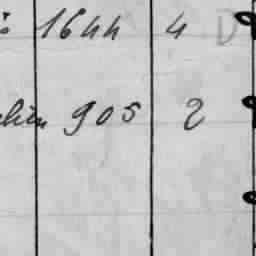 1644 4 D
905 2